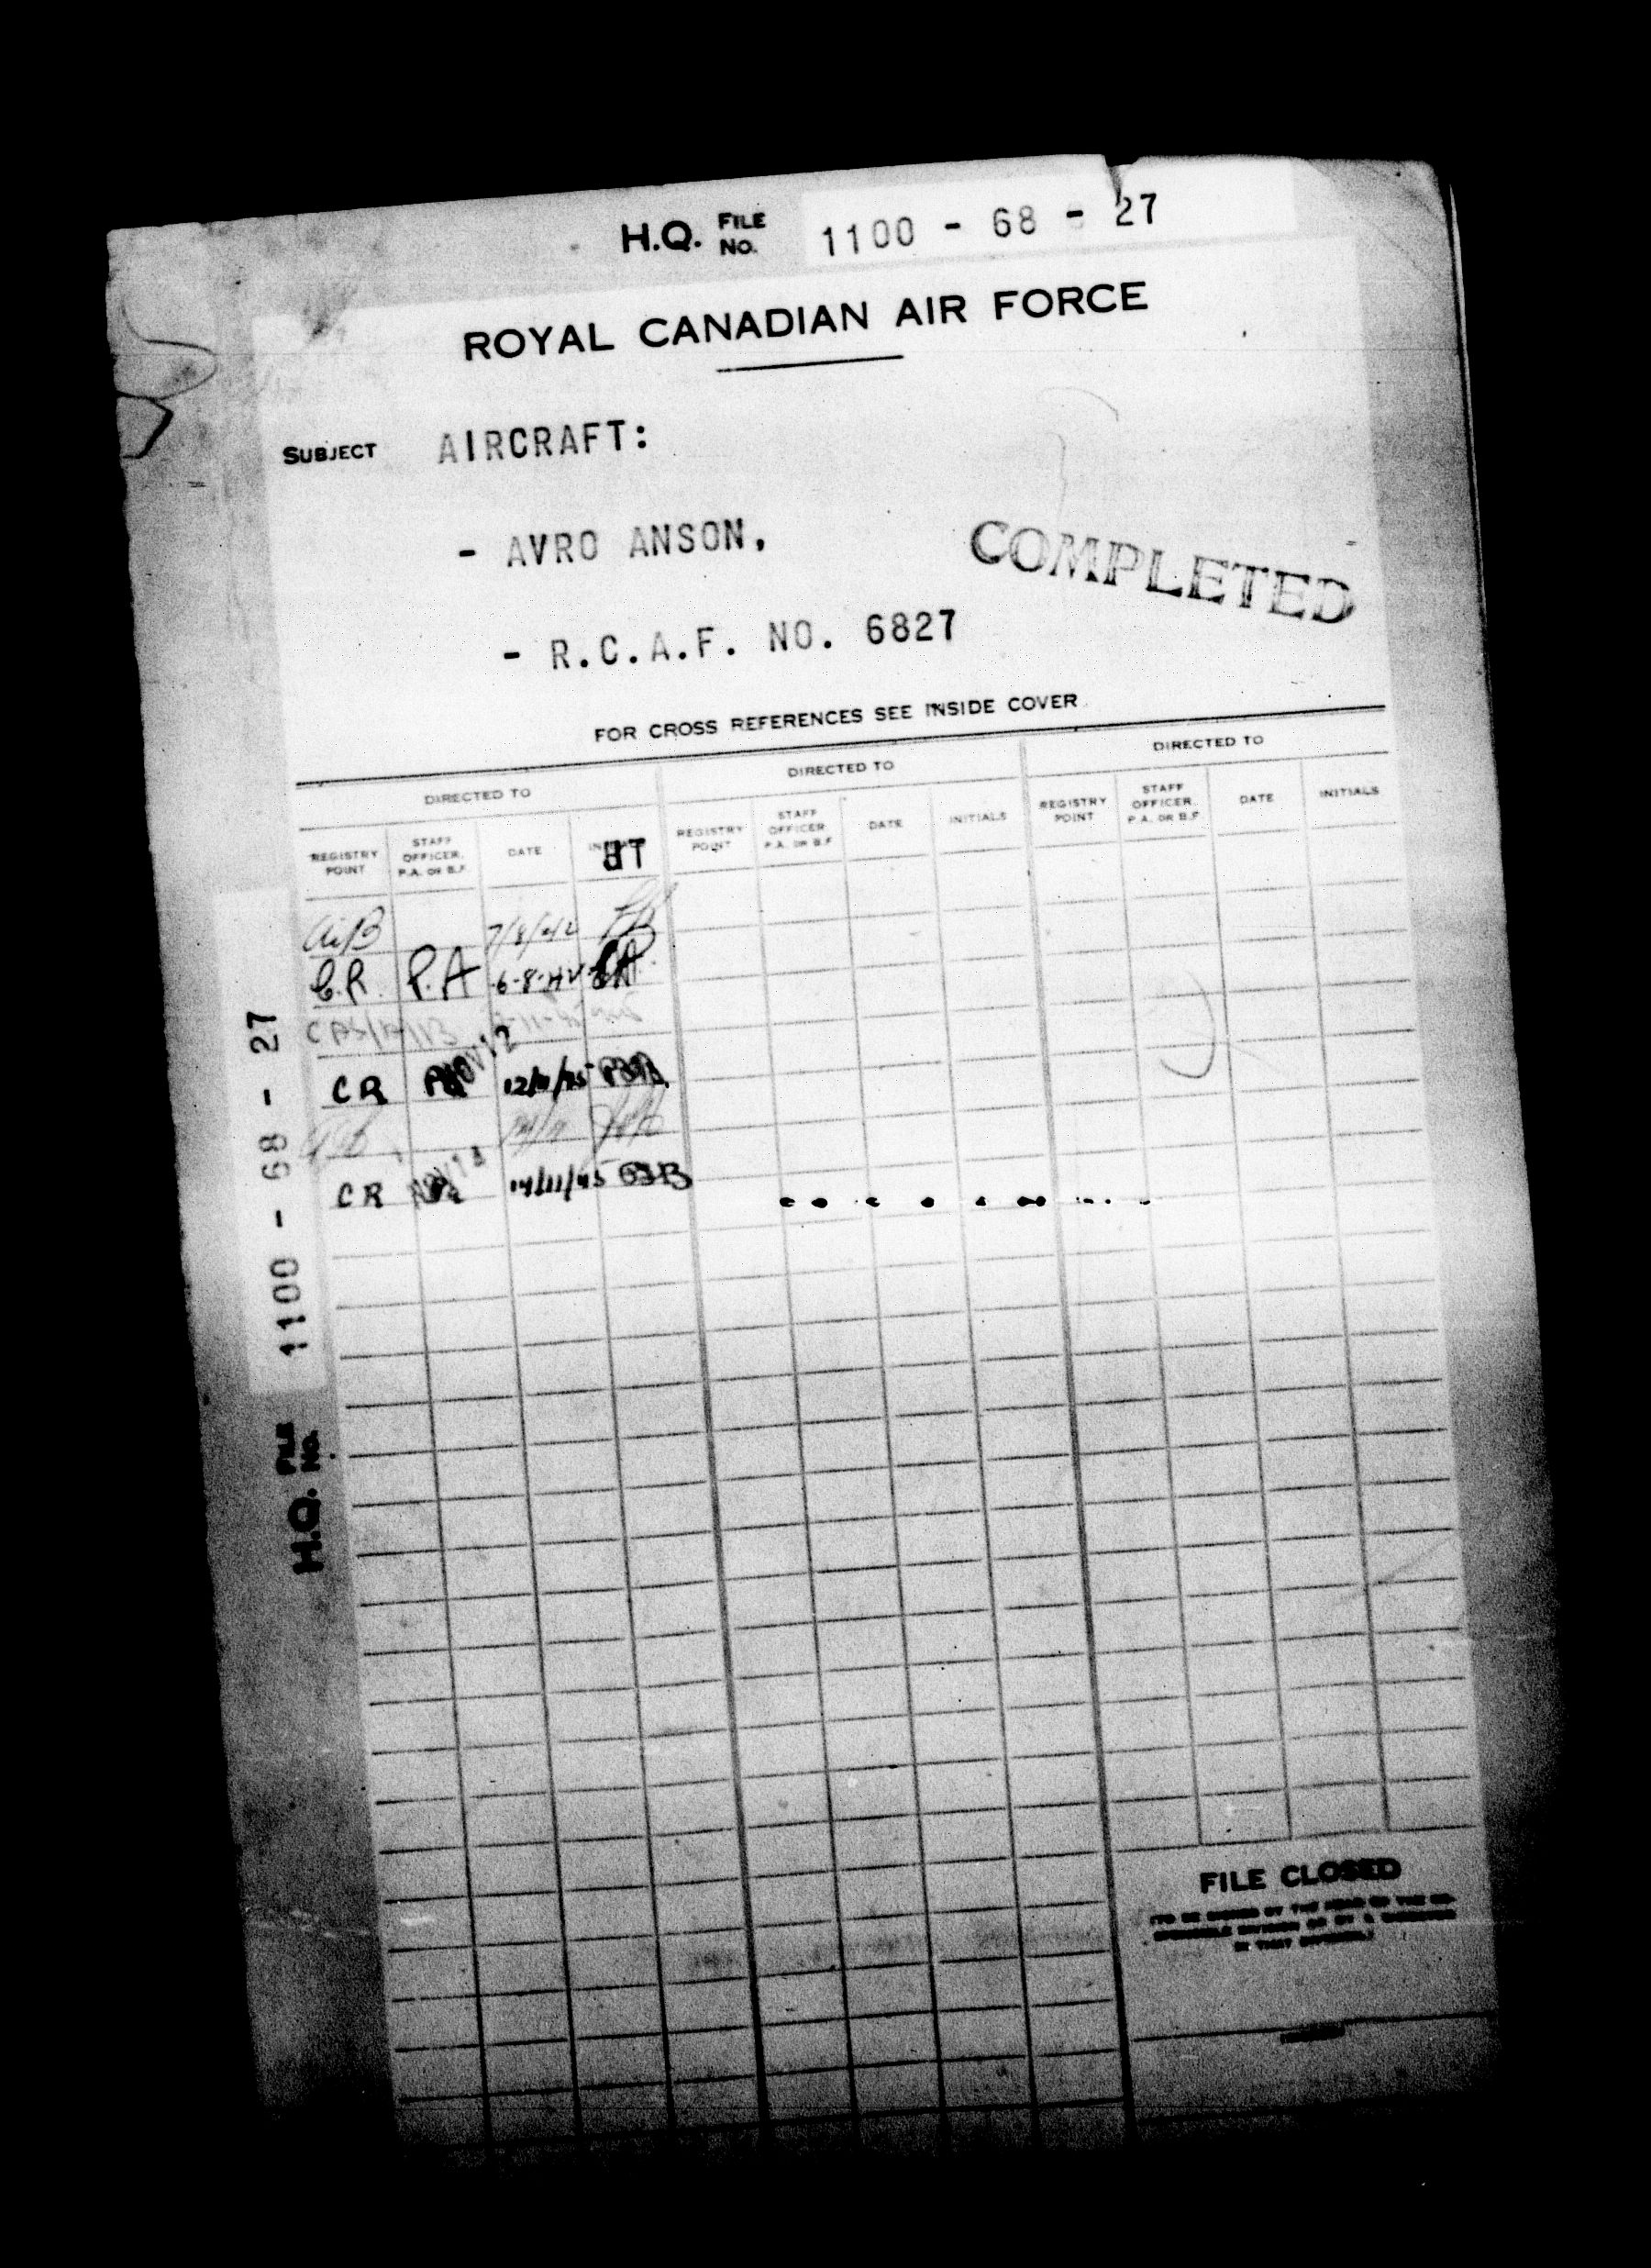 H.Q. FILE NO. 1100 - 68 - 27
ROYAL CANADIAN AIR FORCE
SUBJECT AIRCRAFT:
- AVRO ANSON,
COMPLETED
- R.C.A.F. NO. 6827
FOR CROSS REFERENCES SEE INSIDE COVER
DIRECTED TO DIRECTED TO DIRECTED TO
REGISTRY POINT STAFF OFFICER, P.A. OR B.F. DATE REGISTRY POINT STAFF OFFICER P.A. OR B.F. DATE INITIALS REGISTRY POINT STAFF OFFICER P.A. OR B.F. DATE INITIALS
AIB 7/8/42
C.R. P.A 6-8-42
CR 12/11/45
CR 14/11/45
H.Q. FILE NO. 1100 - 68 - 27
FILE CLOSED